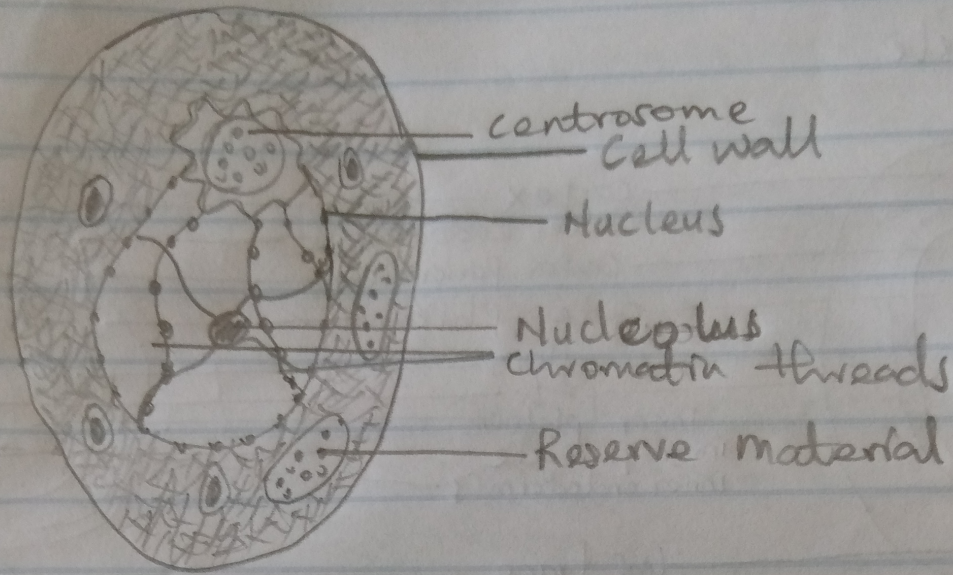 Centrosome
Cell wall
Nucleus
Nucleolus
Chromatin threads
Reserve material